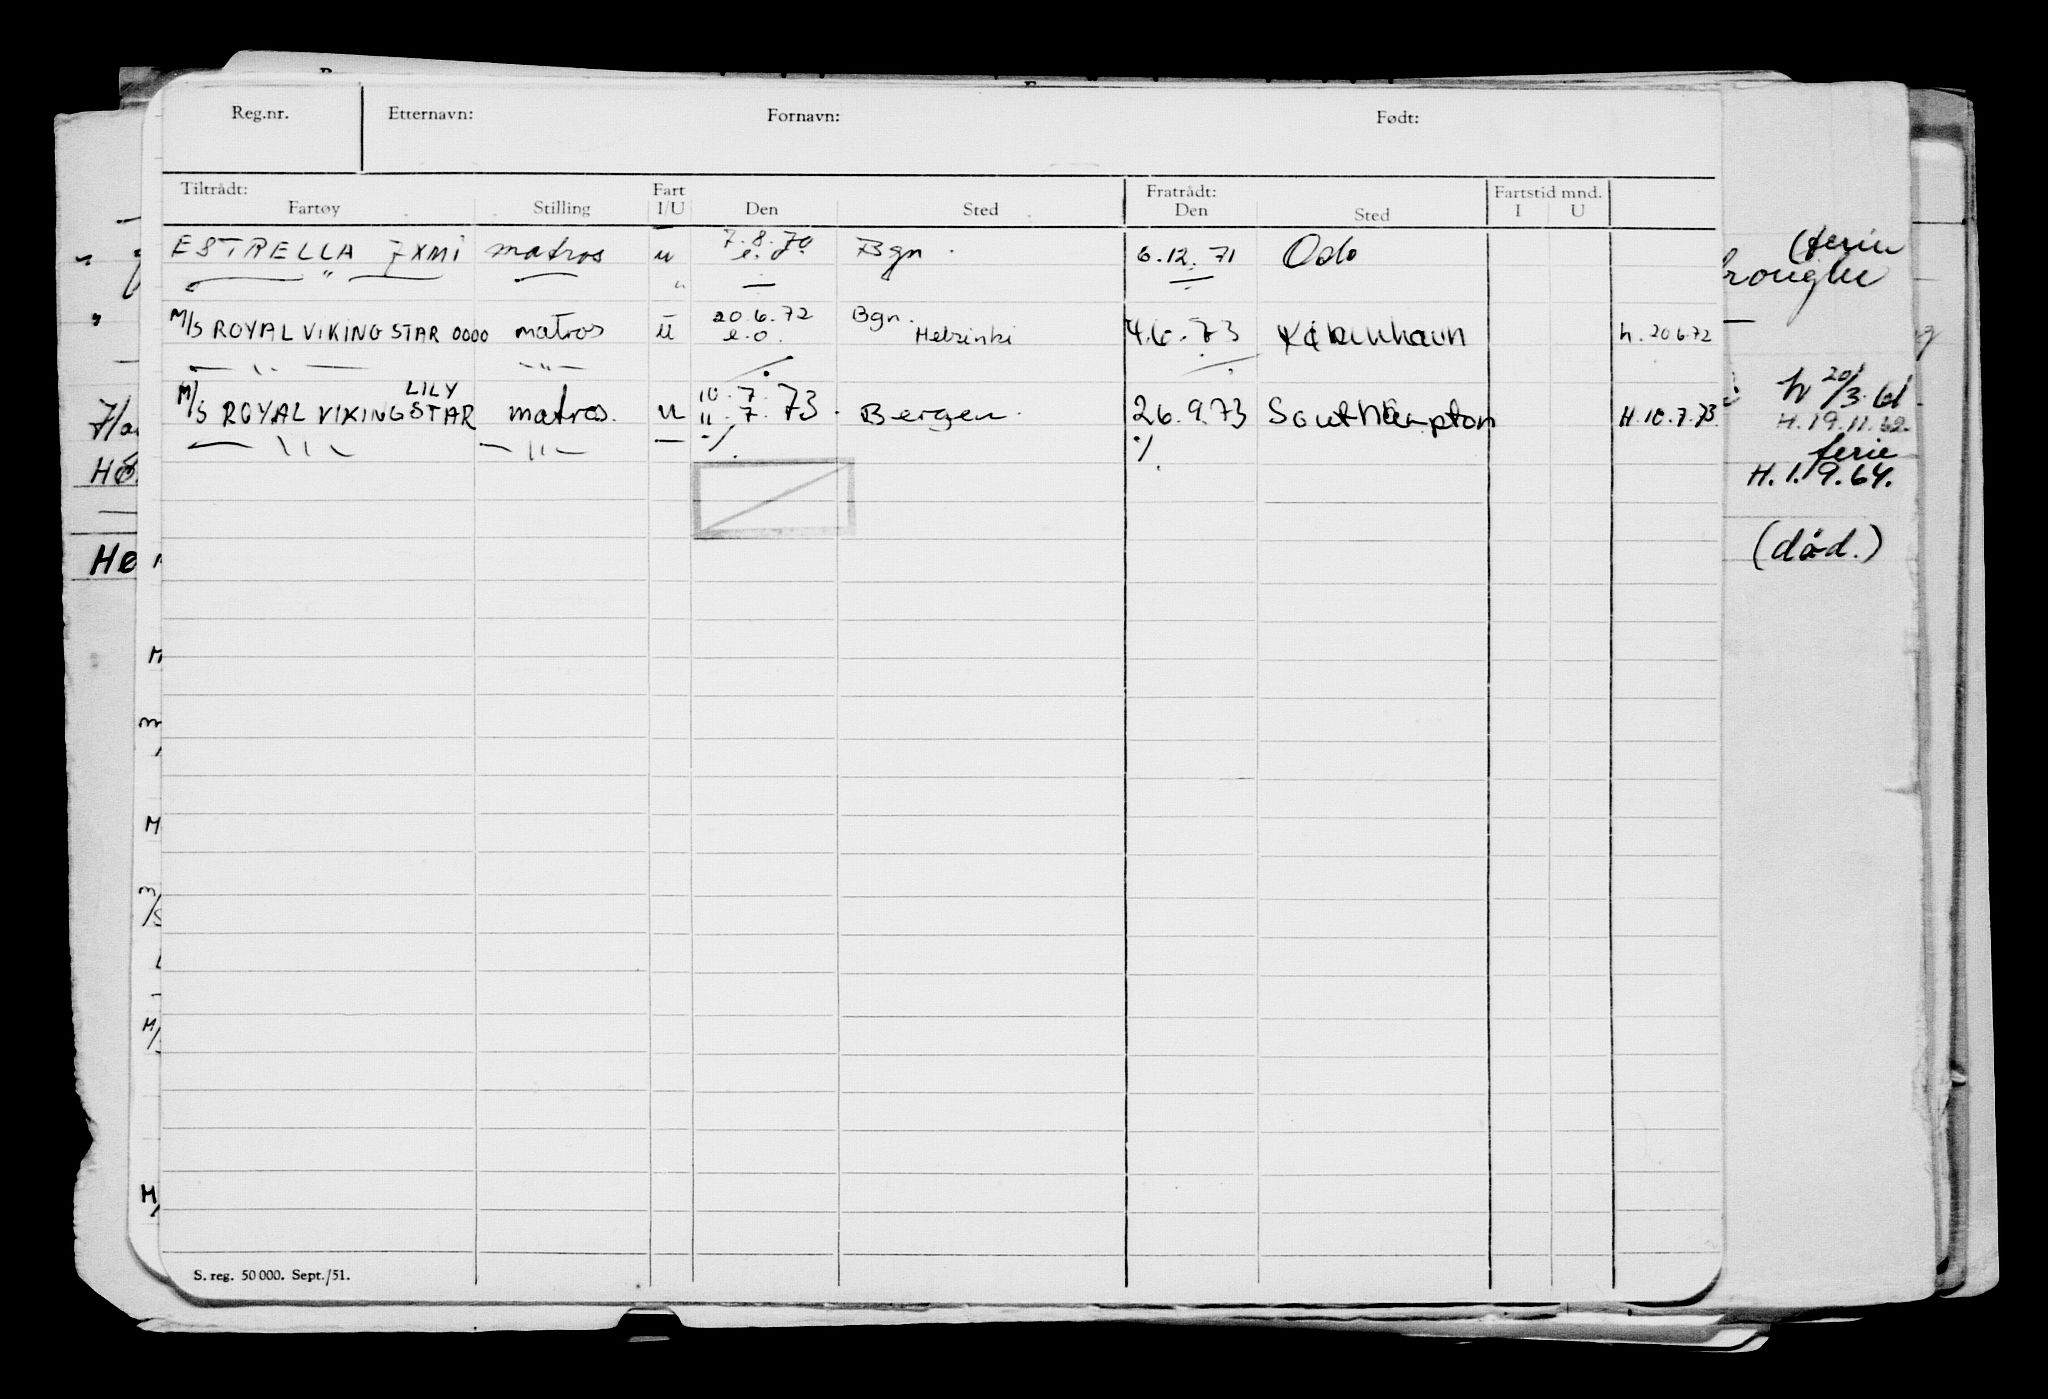 Reg.nr. Etternavn: Fornavn: Født:
Tiltrådt: Fart Fratrådt: Fartstid mnd.
Fartøy Stilling I/U Den Sted Den Sted I U
7.8.70
ESTRELLA 7XMI matros u e.o. Bgn. 6.12.71 Oslo
20.6.72 Bgn.
M/S ROYAL VIKING STAR 0000 matros u e.o. Helsinki 4.6.73 København h. 20.6.72
LILY 10.7.
M/S ROYAL VIKING STAR matros. u 11.7.73. Bergen. 26.9.73 Southampton H.10.7.73.
(ferie
h 20/3.61
H.19.11.62.
ferie
H.1.9.64.
(død.)
S. reg. 50 000. Sept./51.